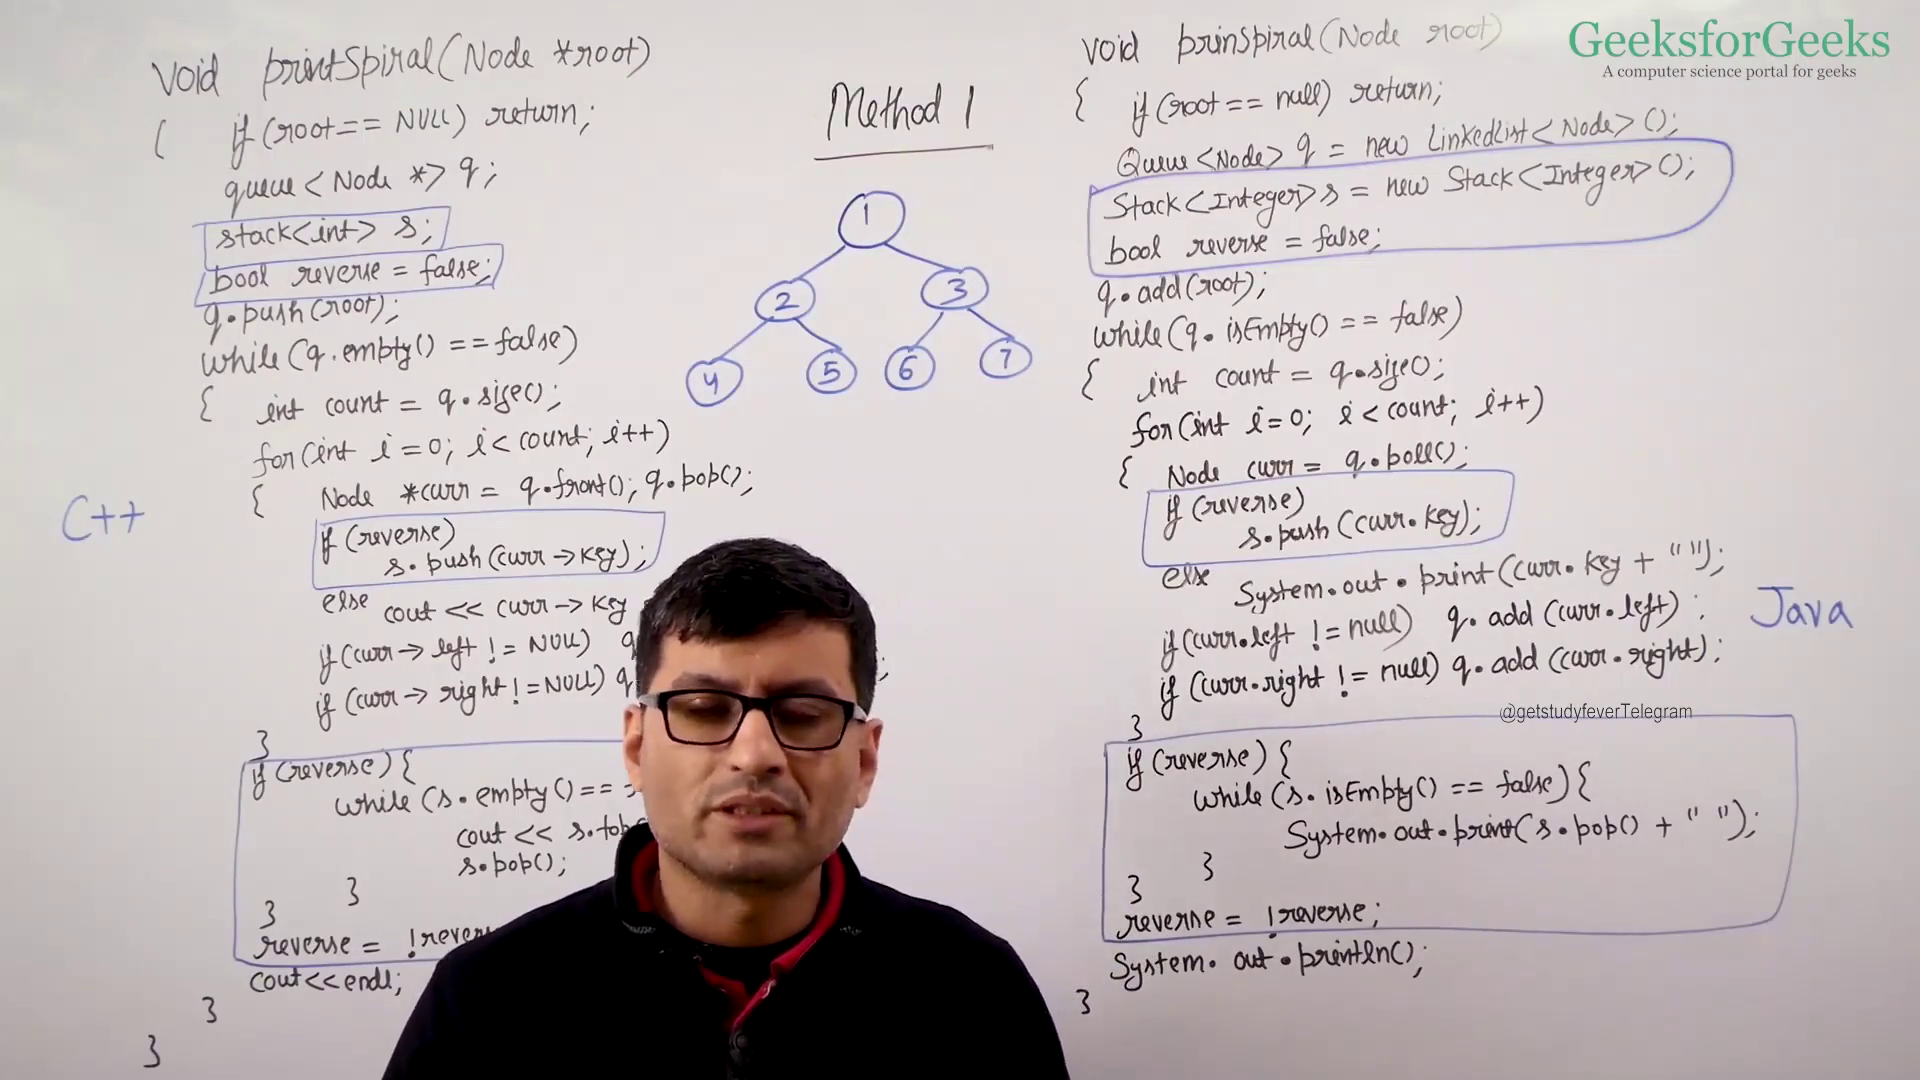 GeeksforGeeks
A computer science portal for geeks
Method 1
void printSpiral(Node *root)
{ if (root == NULL) return;
queue<Node *> q;
stack<int> s;
bool reverse = false;
q.push(root);
while(q.empty() == false)
{ int count = q.size();
for(int i = 0; i < count; i++)
{ Node *curr = q.front(); q.pop();
if (reverse)
s.push(curr->key);
else cout << curr->key
if(curr->left != NULL) q
if(curr->right != NULL) q ;
}
if (reverse) {
while (s.empty() ==
cout << s.top
s.pop();
}
}
reverse = !rever
cout<<endl;
}
}
C++
1
2 3
4 5 6 7
void prinSpiral(Node root)
{ if (root == null) return;
Queue<Node> q = new LinkedList<Node>();
Stack<Integer> s = new Stack<Integer>();
bool reverse = false;
q.add(root);
while(q.isEmpty() == false)
{ int count = q.size();
for(int i = 0; i < count; i++)
{ Node curr = q.poll();
if (reverse)
s.push(curr.key);
else System.out.print(curr.key + " ");
if(curr.left != null) q.add(curr.left);
if(curr.right != null) q.add(curr.right);
}
if (reverse) {
while (s.isEmpty() == false) {
System.out.print(s.pop() + " ");
}
}
reverse = !reverse;
System.out.println();
}
Java
@getstudyfeverTelegram